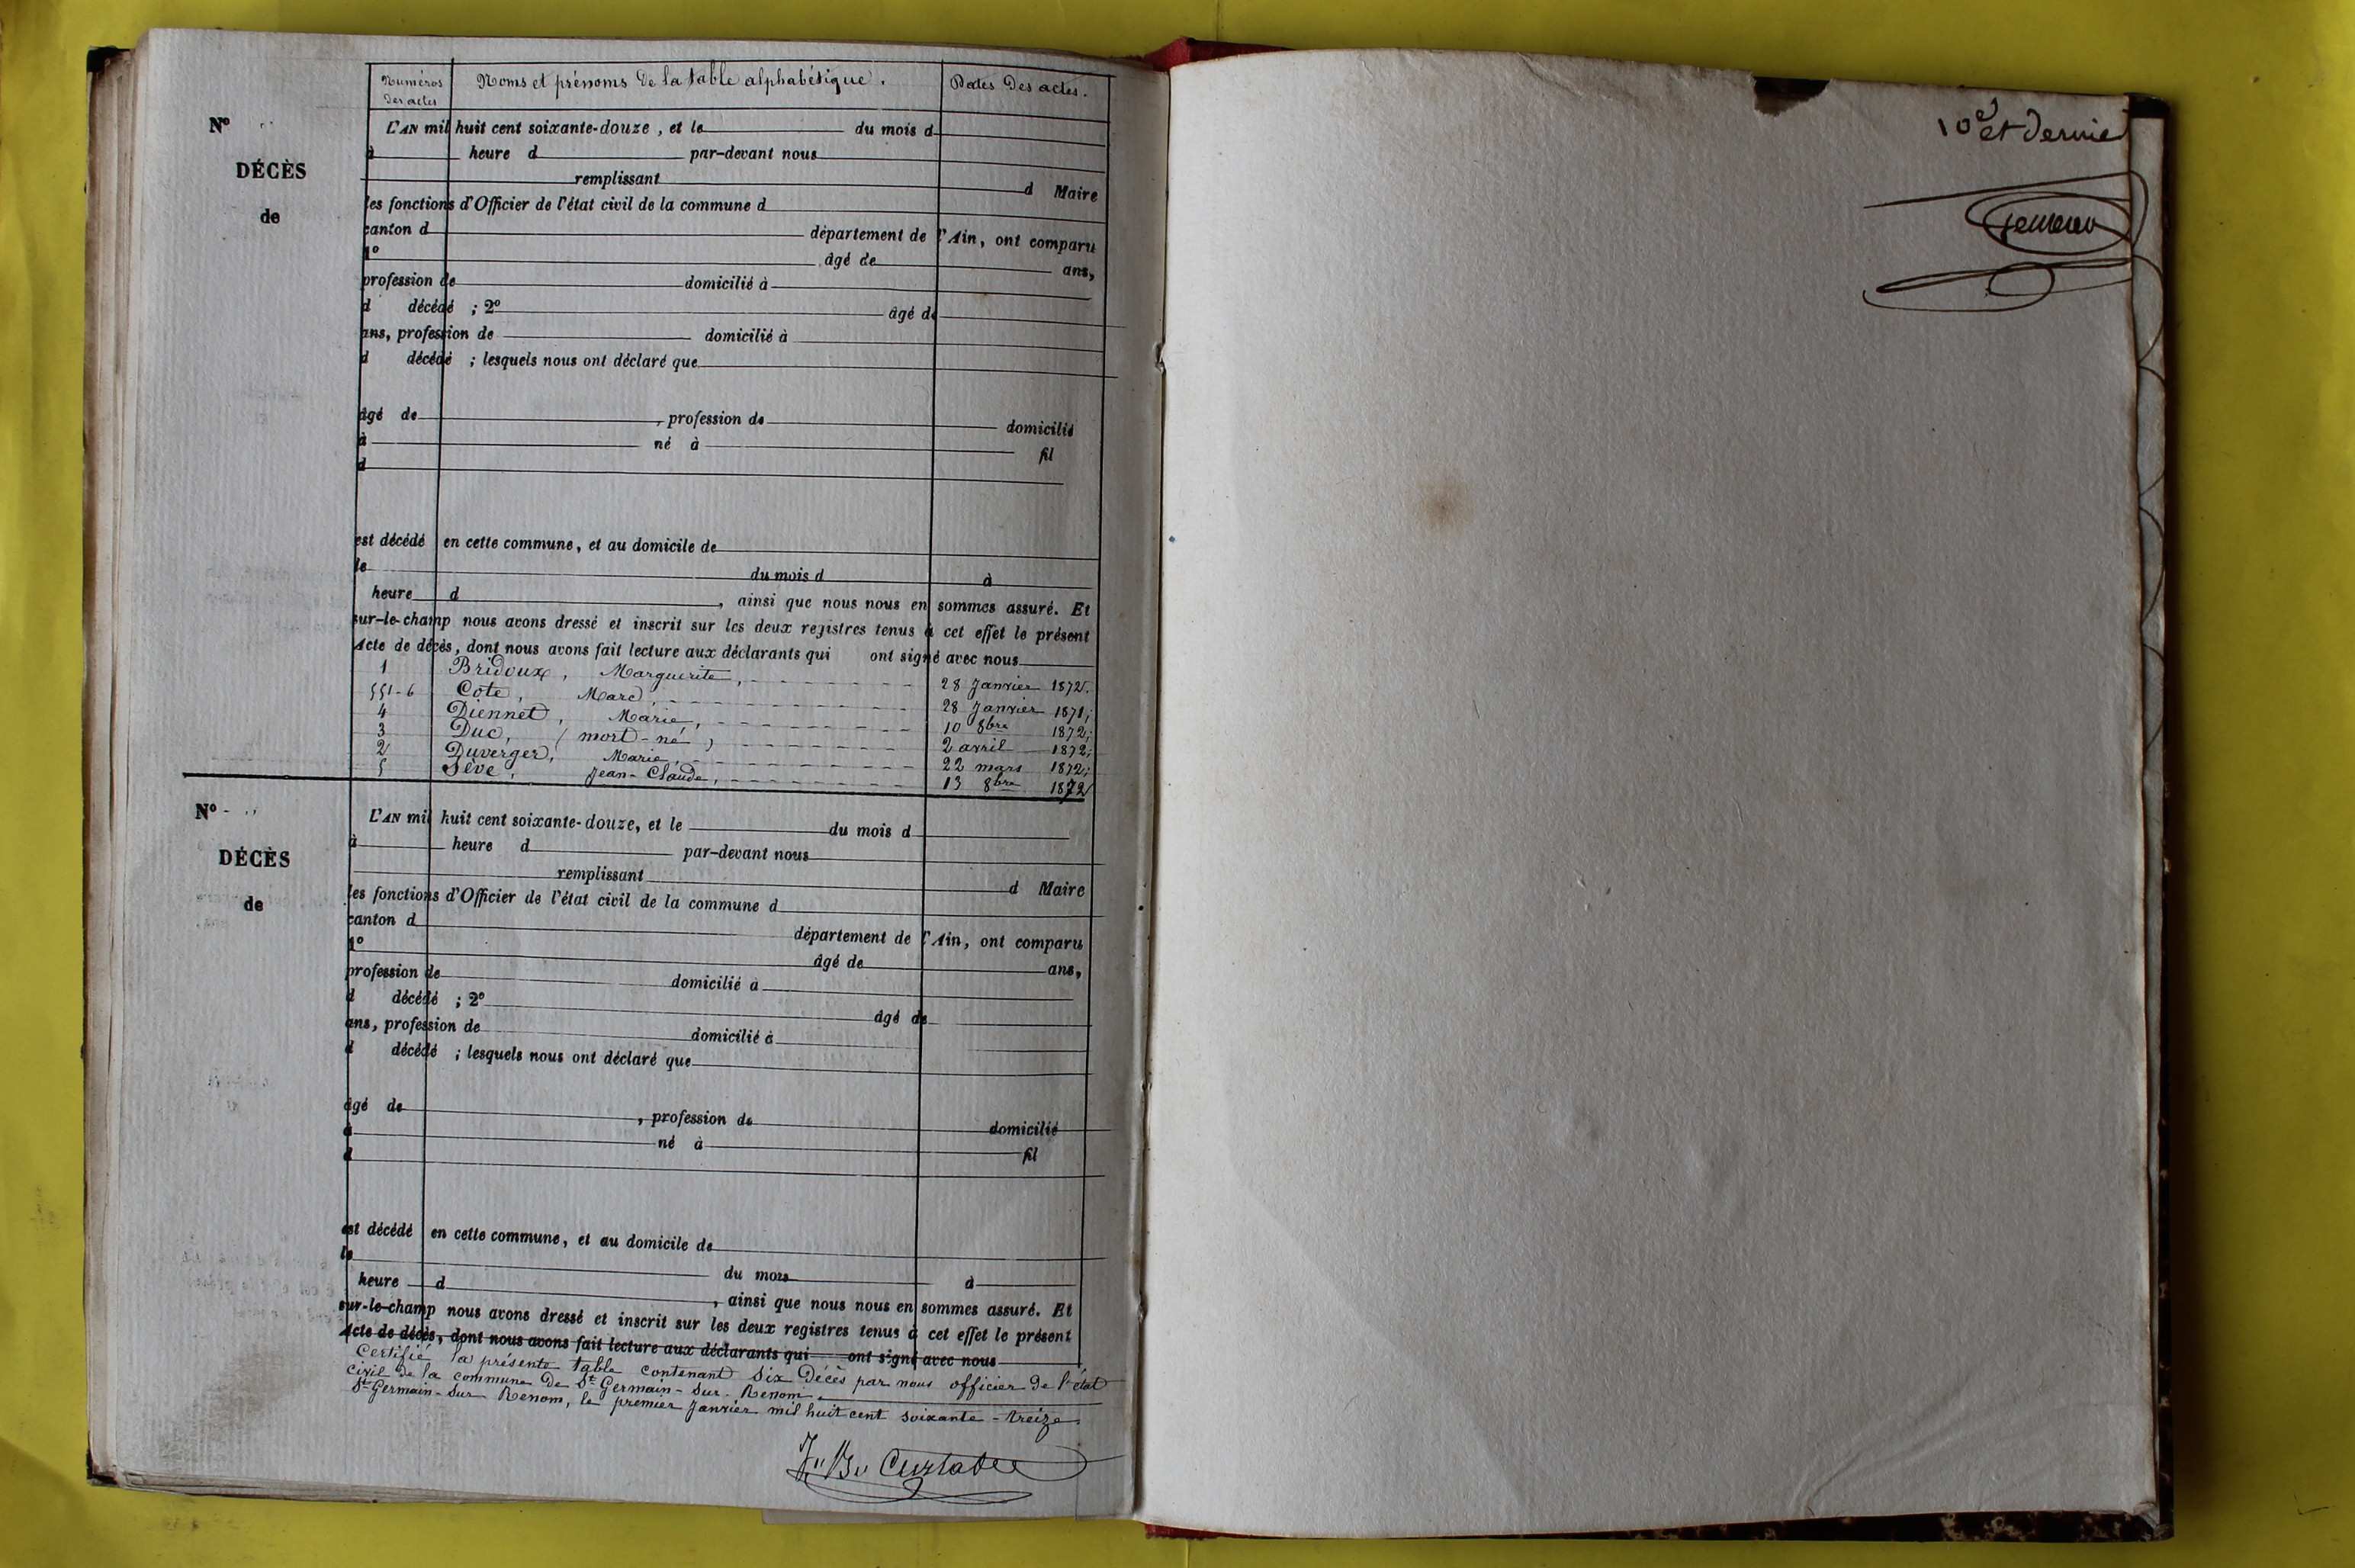 Numéros des actes
Noms et prénoms de la table alphabétique.
Dates des actes.
N°
DÉCÈS
de
L'AN mil huit cent soixante-douze, et le du mois d
à heure d par-devant nous
remplissant d Maire
les fonctions d'Officier de l'état civil de la commune d
canton d département de l'Ain, ont comparu
1° âgé de ans,
profession de domicilié à
d décédé ; 2° âgé de
ans, profession de domicilié à
d décédé ; lesquels nous ont déclaré que
âgé de , profession de domicilié
à né à fil
d
est décédé en cette commune, et au domicile de
le du mois d à
heure d , ainsi que nous nous en sommes assuré. Et
sur-le-champ nous avons dressé et inscrit sur les deux registres tenus à cet effet le présent
Acte de décès, dont nous avons fait lecture aux déclarants qui ont signé avec nous
1 Bridoux, Marguerite, 28 Janvier 1872.
551-6 Cote, Marc, 28 Janvier 1871;
4 Diennet, Marie, 10 8bre 1872;
3 Duc, (mort-né) 2 avril 1872;
2 Duverger, Marie, 22 mars 1872;
5 Sève, Jean-Claude, 13 8bre 1872
N°
DÉCÈS
de
L'AN mil huit cent soixante-douze, et le du mois d
à heure d par-devant nous
remplissant d Maire
les fonctions d'Officier de l'état civil de la commune d
canton d département de l'Ain, ont comparu
1° âgé de ans,
profession de domicilié à
d décédé ; 2° âgé de
ans, profession de domicilié à
d décédé ; lesquels nous ont déclaré que
âgé de , profession de domicilié
à né à fil
d
est décédé en cette commune, et au domicile de
le du mois à
heure d , ainsi que nous nous en sommes assuré. Et
sur-le-champ nous avons dressé et inscrit sur les deux registres tenus à cet effet le présent
Acte de décès, dont nous avons fait lecture aux déclarants qui ont signé avec nous
Certifié la présente table contenant six Décès par nous officier de l'état
civil de la commune de St Germain-sur-Renom.
St Germain-sur-Renom, le premier Janvier mil huit cent soixante-treize
10e et dernier